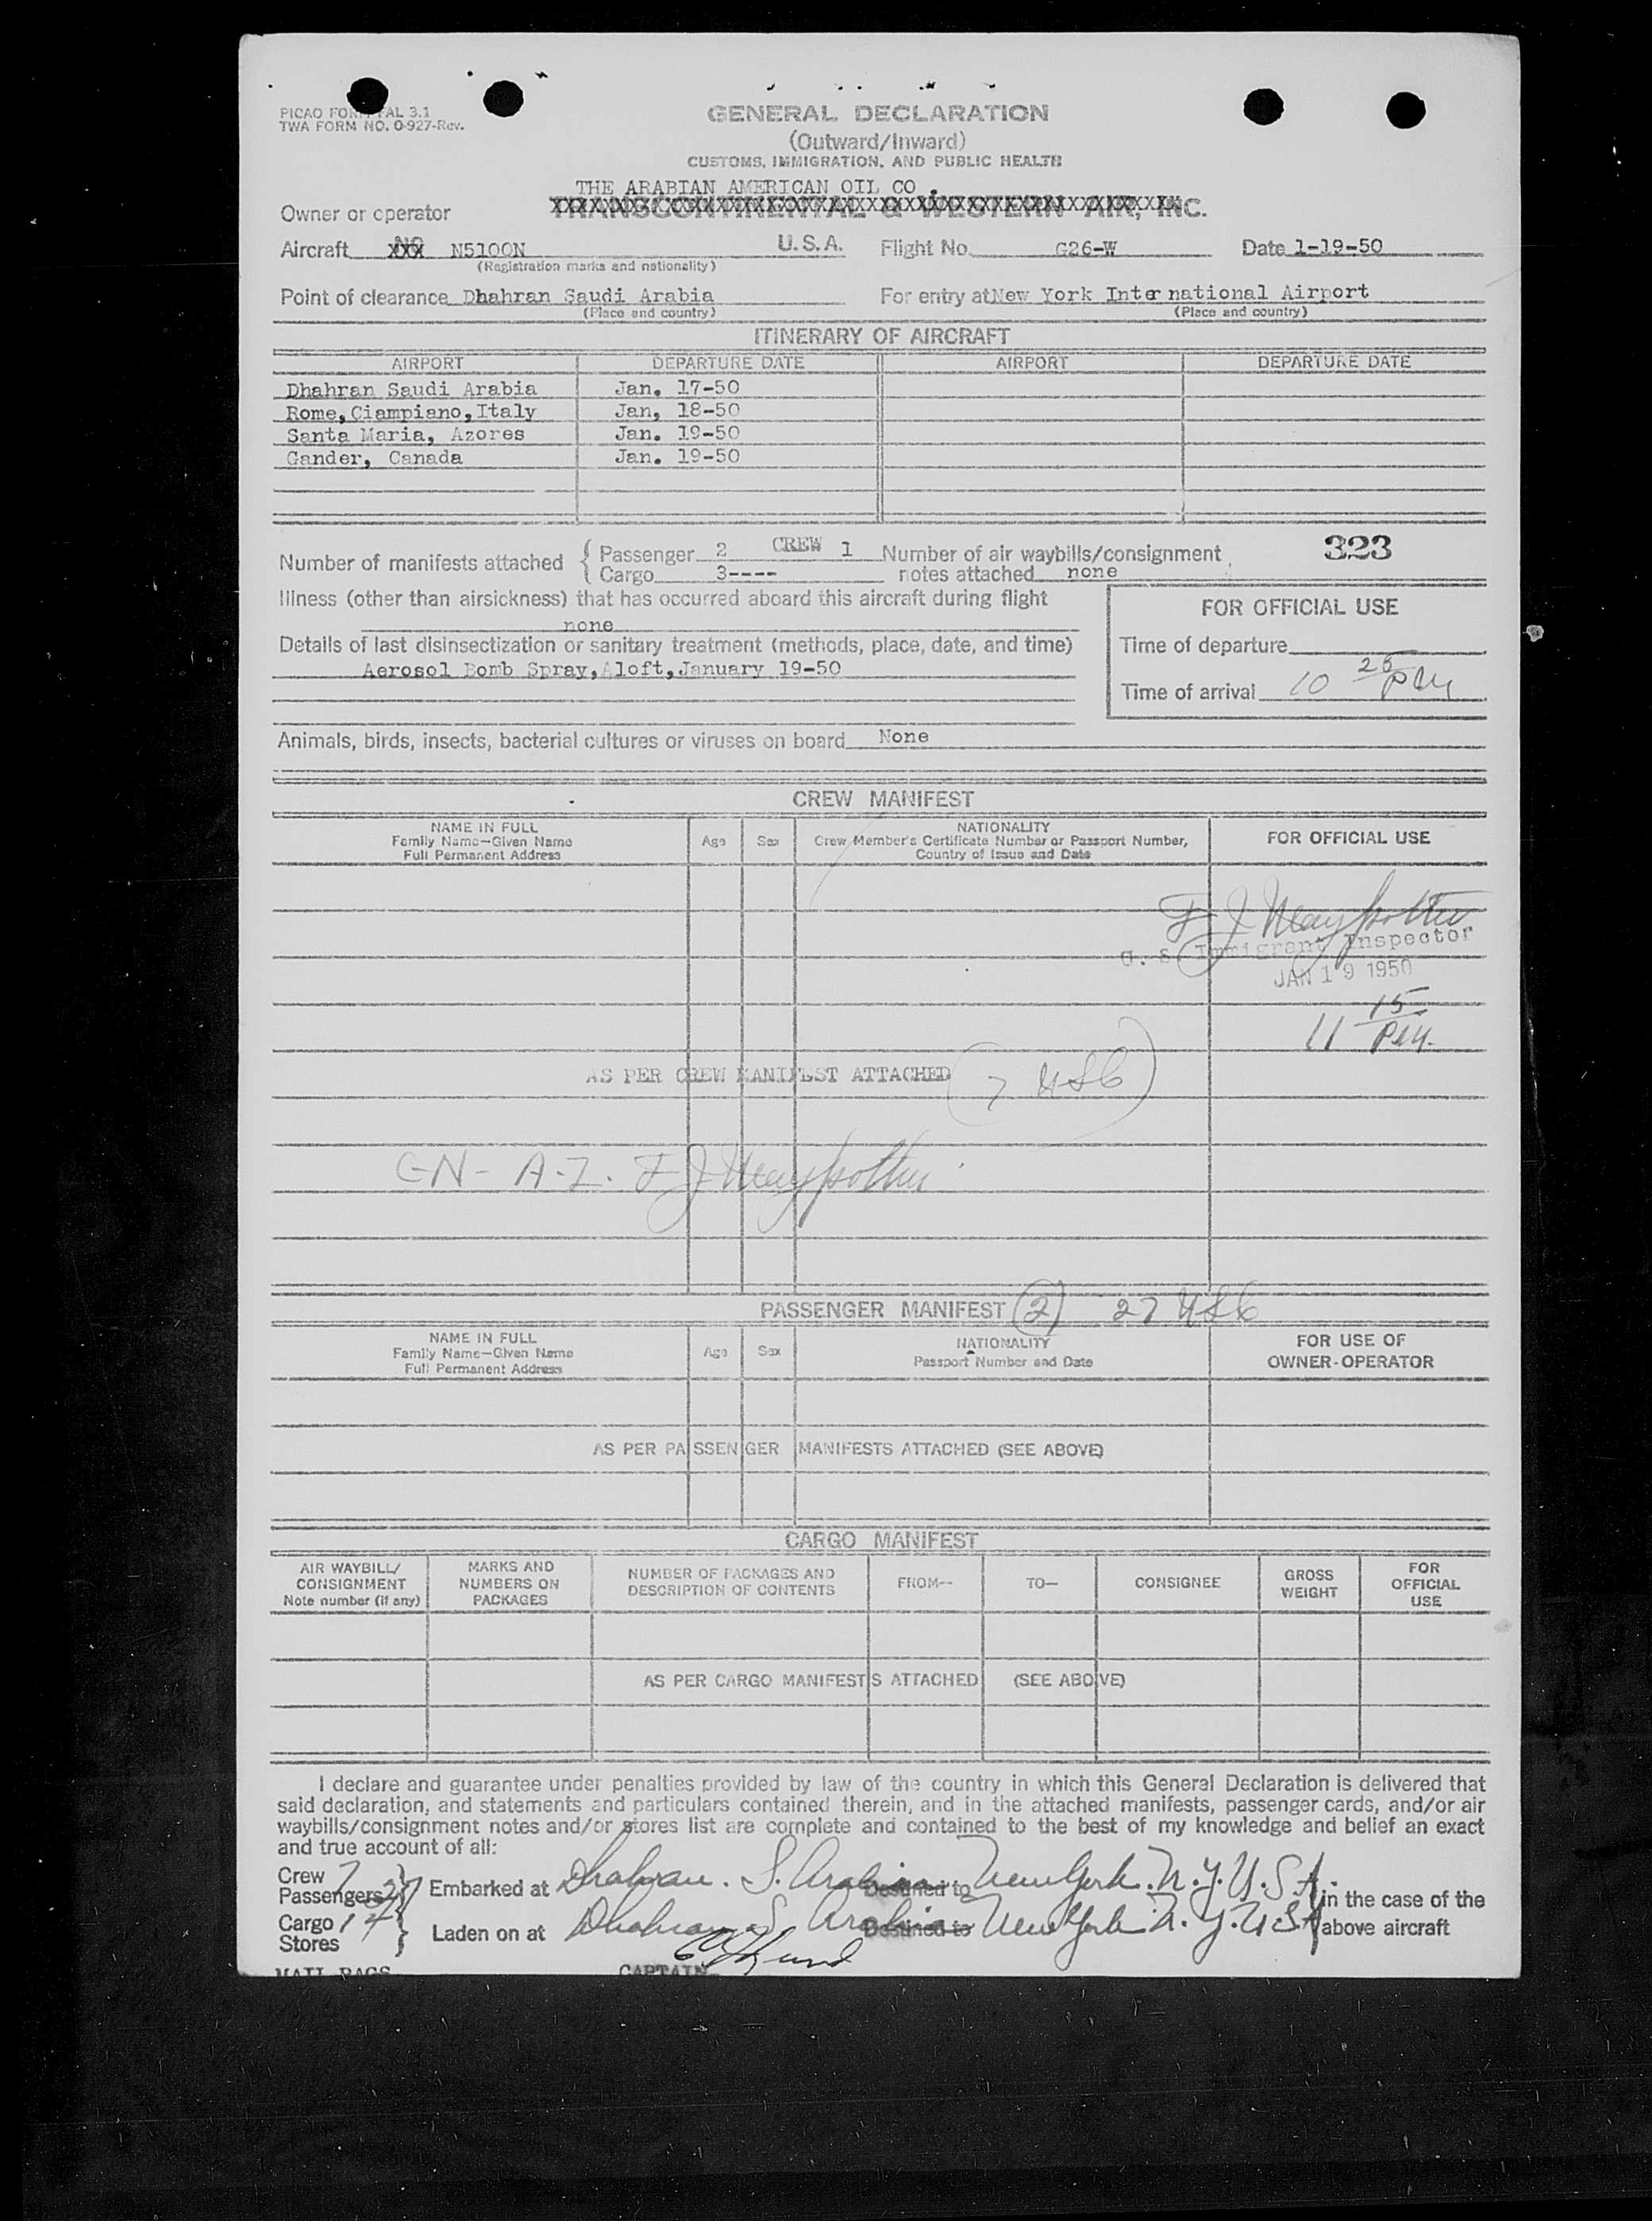 PICAO FORM FAL 3.1
TWA FORM NO. 0-927-Rev.
GENERAL DECLARATION
(Outward/Inward)
CUSTOMS, IMMIGRATION, AND PUBLIC HEALTH
THE ARABIAN AMERICAN OIL CO.
Owner or operator TRANSCONTINENTAL & WESTERN AIR, INC.
Aircraft NC N5100N U.S.A. Flight No. G26-W Date 1-19-50
(Registration marks and nationality)
Point of clearance Dhahran Saudi Arabia For entry at New York International Airport
(Place and country) (Place and country)
ITINERARY OF AIRCRAFT
AIRPORT DEPARTURE DATE AIRPORT DEPARTURE DATE
Dhahran Saudi Arabia Jan. 17-50
Rome, Ciampiano, Italy Jan, 18-50
Santa Maria, Azores Jan. 19-50
Gander, Canada Jan. 19-50
Number of manifests attached { Passenger 2 CREW 1 Number of air waybills/consignment 323
Cargo 3---- notes attached none
Illness (other than airsickness) that has occurred aboard this aircraft during flight
none
FOR OFFICIAL USE
Details of last disinsectization or sanitary treatment (methods, place, date, and time)
Aerosol Bomb Spray, Aloft, January 19-50
Time of departure
Time of arrival 10 25 PM
Animals, birds, insects, bacterial cultures or viruses on board None
CREW MANIFEST
NAME IN FULL
Family Name—Given Name
Full Permanent Address
Age Sex
NATIONALITY
Crew Member's Certificate Number or Passport Number,
Country of Issue and Date
FOR OFFICIAL USE
F J
U. S. Immigrant Inspector
JAN 19 1950
11 15 PM.
AS PER CREW MANIFEST ATTACHED 7 USC
F J
PASSENGER MANIFEST 2 27 USC
NAME IN FULL
Family Name—Given Name
Full Permanent Address
Age Sex
NATIONALITY
Passport Number and Date
FOR USE OF
OWNER-OPERATOR
AS PER PASSENGER MANIFESTS ATTACHED (SEE ABOVE)
CARGO MANIFEST
AIR WAYBILL/
CONSIGNMENT
Note number (if any)
MARKS AND
NUMBERS ON
PACKAGES
NUMBER OF PACKAGES AND
DESCRIPTION OF CONTENTS
FROM—
TO—
CONSIGNEE
GROSS
WEIGHT
FOR
OFFICIAL
USE
AS PER CARGO MANIFESTS ATTACHED (SEE ABOVE)
I declare and guarantee under penalties provided by law of the country in which this General Declaration is delivered that
said declaration, and statements and particulars contained therein, and in the attached manifests, passenger cards, and/or air
waybills/consignment notes and/or stores list are complete and contained to the best of my knowledge and belief an exact
and true account of all:
Crew 7
Passengers 27 } Embarked at Dhahran. S. Arabia Destined to New York. N.Y. U.S.A. in the case of the
Cargo
Stores } Laden on at Dhahran S. Arabia Destined to New York N.Y. USA above aircraft
MAIL BAGS CAPTAIN